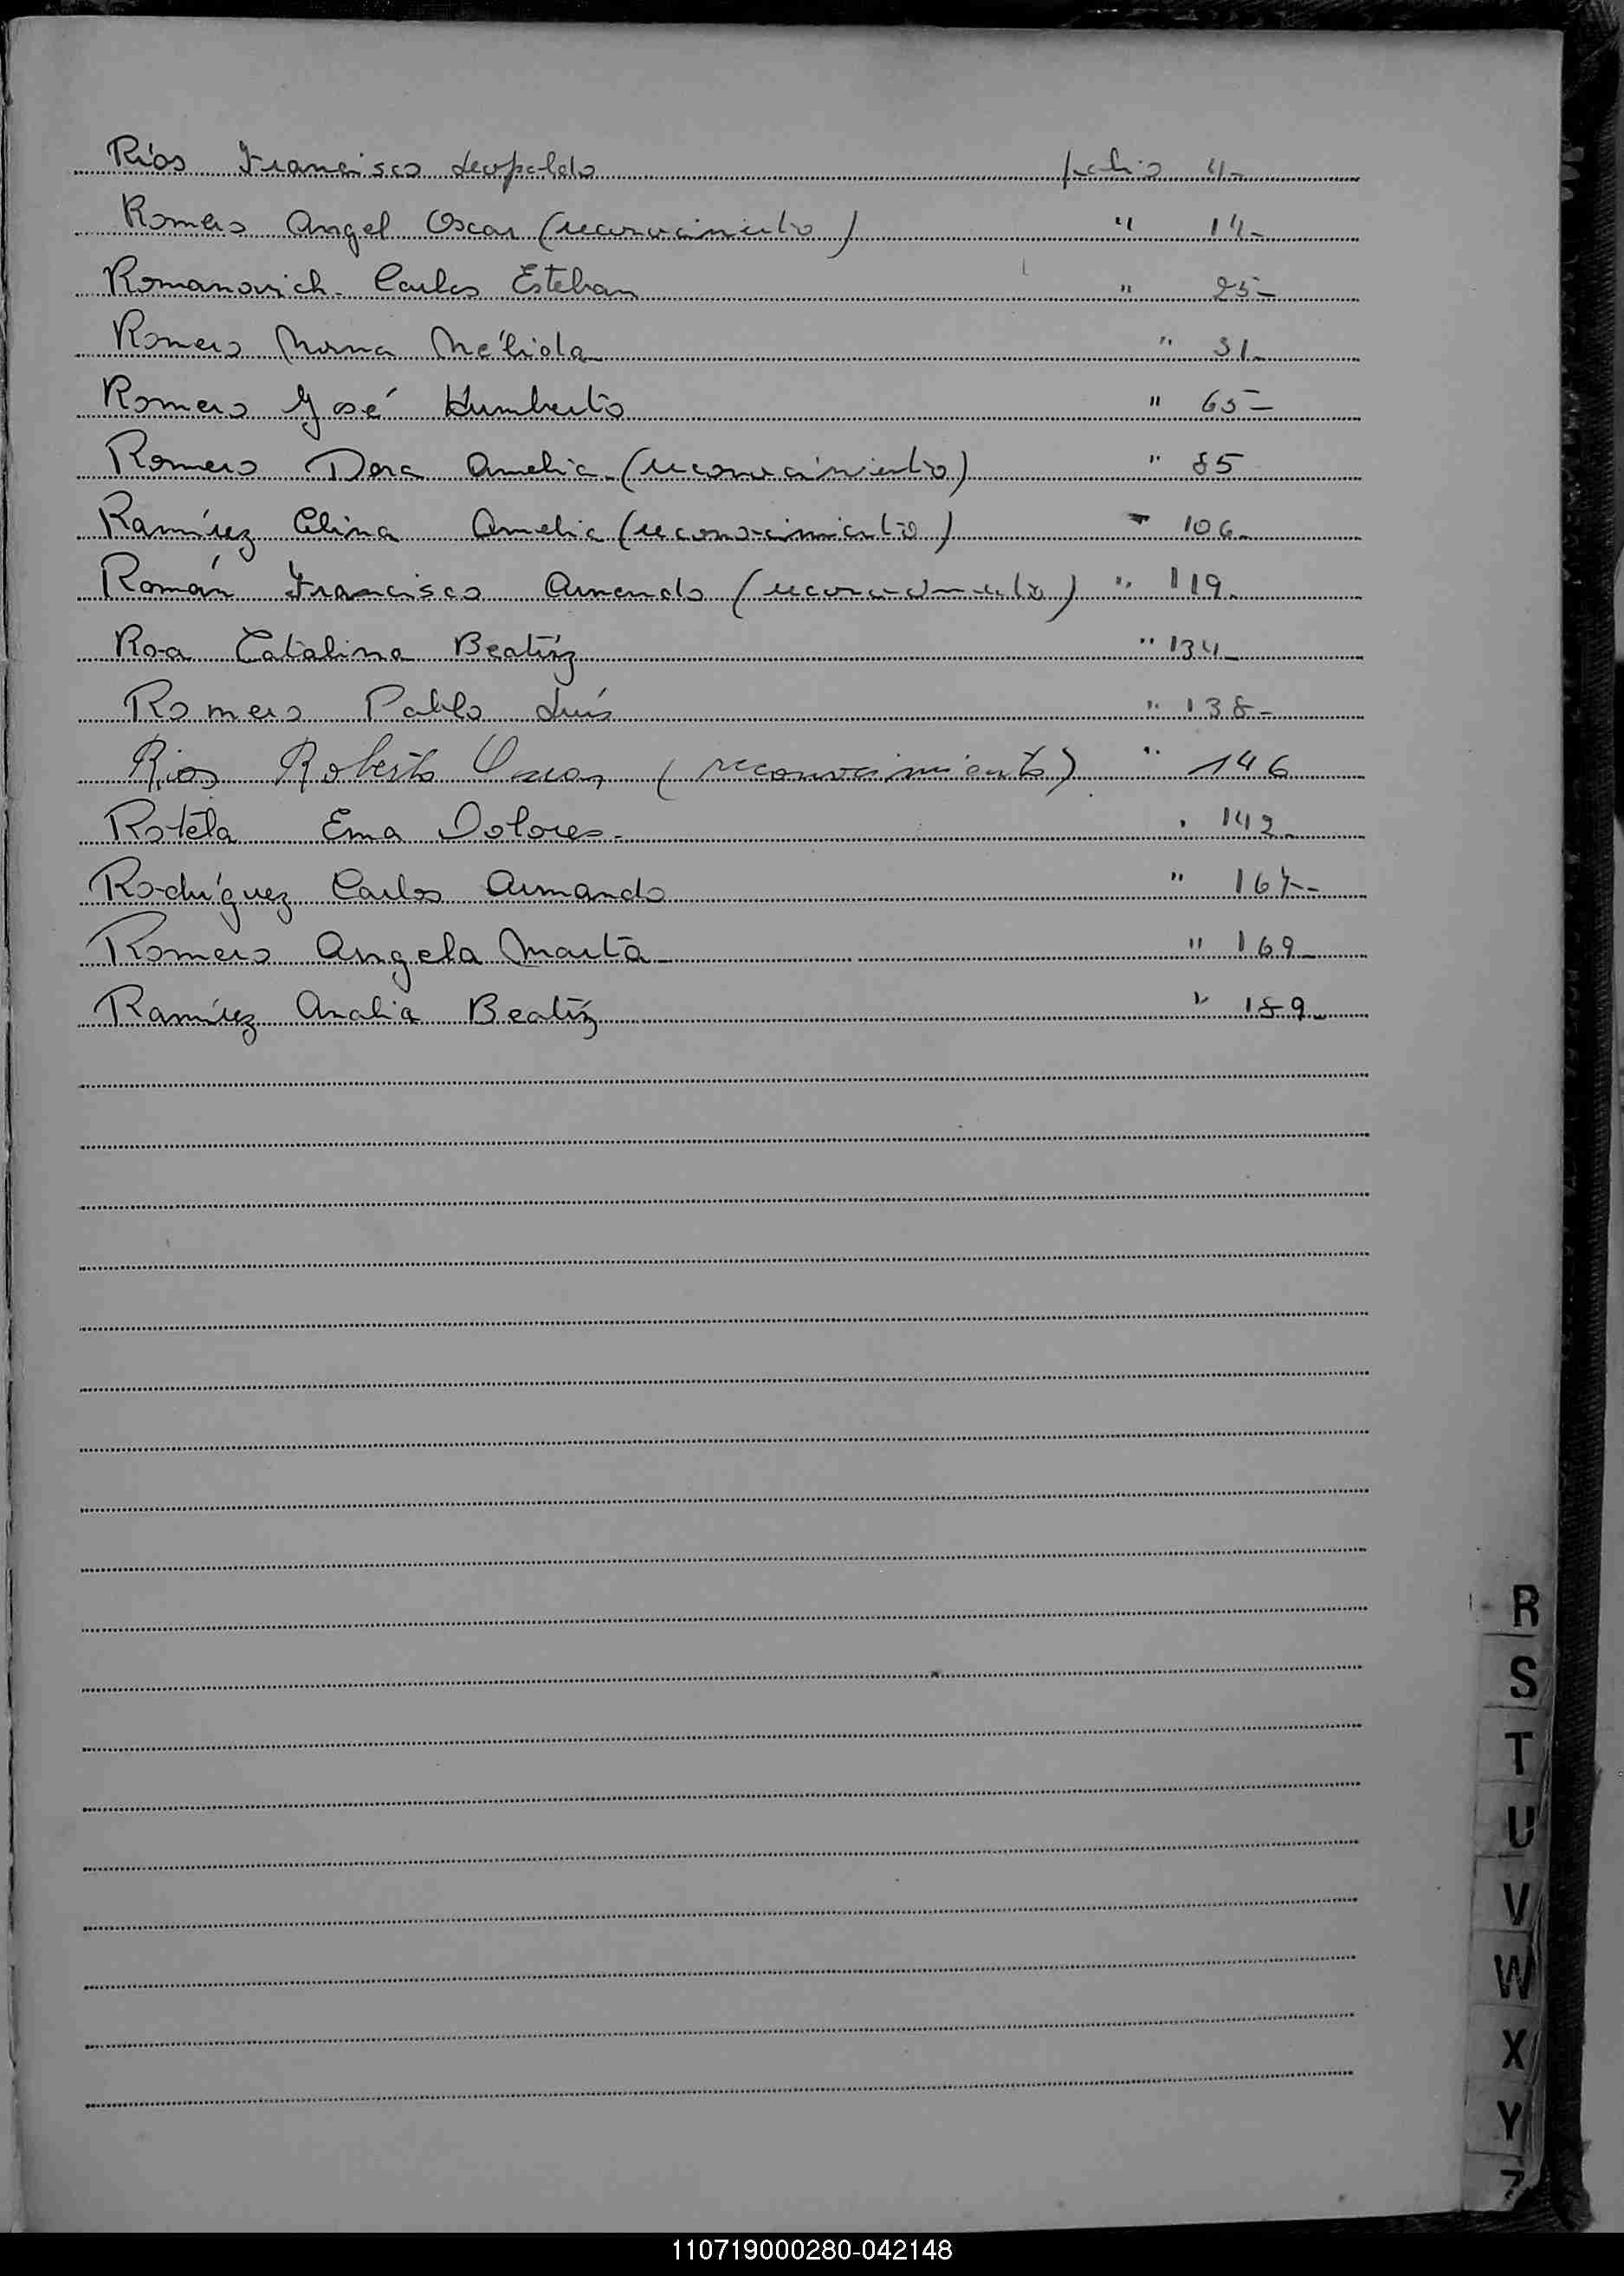 Ríos Francisco Leopoldo folio 4-
Romero Angel Oscar (reconocimiento) " 14-
Romanovich Carlos Esteban " 25-
Romero Mirna Nélida " 31-
Romero José Humberto " 65-
Romero Dora Amelia (reconocimiento) " 85
Ramírez Celina Amelia (reconocimiento) " 106-
Román Francisco Armando (reconocimiento) " 119.
Roa Catalina Beatríz " 134-
Romero Pablo Luís " 138-
Rios Roberto Oscar (reconocimiento) " 146
Rotela Ema Dolores- " 142-
Rodríguez Carlos Armando " 167-
Romero Angela Marta " 169-
Ramírez Analia Beatríz " 189-
R
S
T
U
V
W
X
Y
Z
110719000280-042148